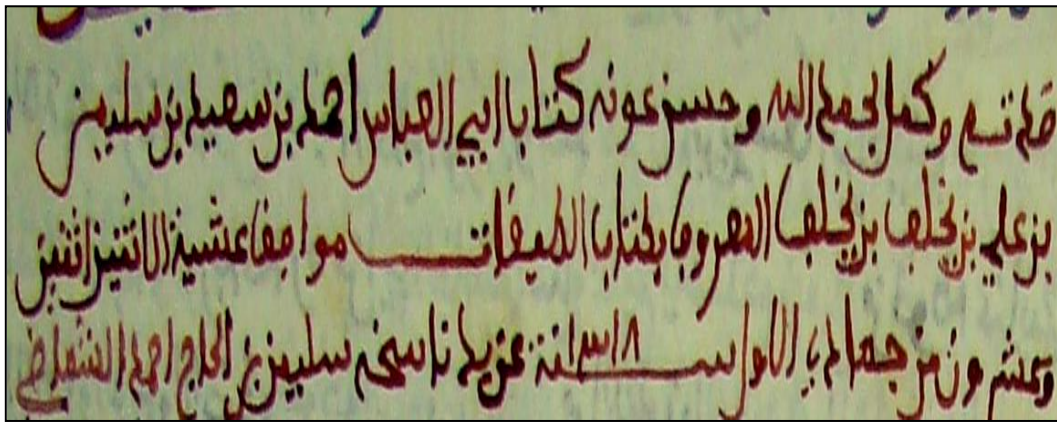 قد تم وكمل بحمد الله وحسن عونه كتاب ابي العباس احمد بن سعيد بن سليمن
بن علي بن يخلف بن يخلف المعروف بكتاب الطبقات موافق عشية الاثنين اثنين
وعشرون من جمادي الاول سنة عن يد ناسخه سليمن بن الحاج احمد الشماخي